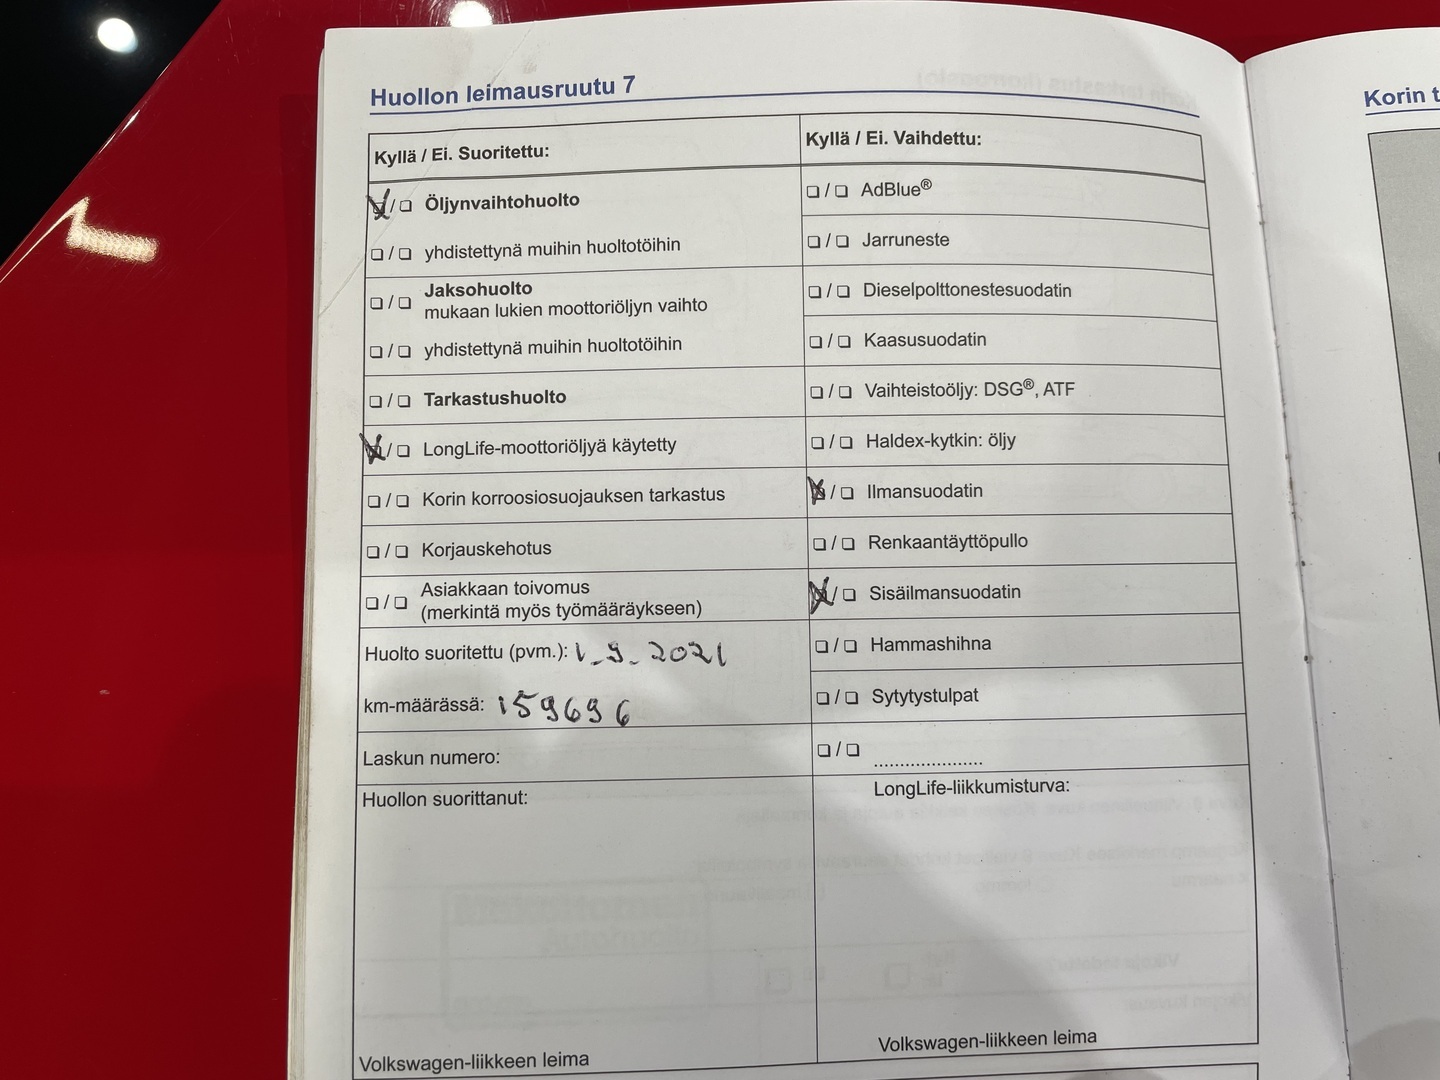 Huollon leimausruutu 7
Kyllä / Ei. Suoritettu:
Öljynvaihtohuolto
yhdistettynä muihin huoltotöihin
Jaksohuolto
mukaan lukien moottoriöljyn vaihto
yhdistettynä muihin huoltotöihin
Tarkastushuolto
LongLife-moottoriöljyä käytetty
Korin korroosiosuojauksen tarkastus
Korjauskehotus
Asiakkaan toivomus
(merkintä myös työmääräykseen)
Huolto suoritettu (pvm.): 1.9.2021
km-määrässä: 159696
Laskun numero:
Huollon suorittanut:
Volkswagen-liikkeen leima
Kyllä / Ei. Vaihdettu:
AdBlue®
Jarruneste
Dieselpolttonestesuodatin
Kaasusuodatin
Vaihteistoöljy: DSG®, ATF
Haldex-kytkin: öljy
Ilmansuodatin
Renkaantäyttöpullo
Sisäilmansuodatin
Hammashihna
Sytytystulpat
.....................
LongLife-liikkumisturva:
Volkswagen-liikkeen leima
Korin t